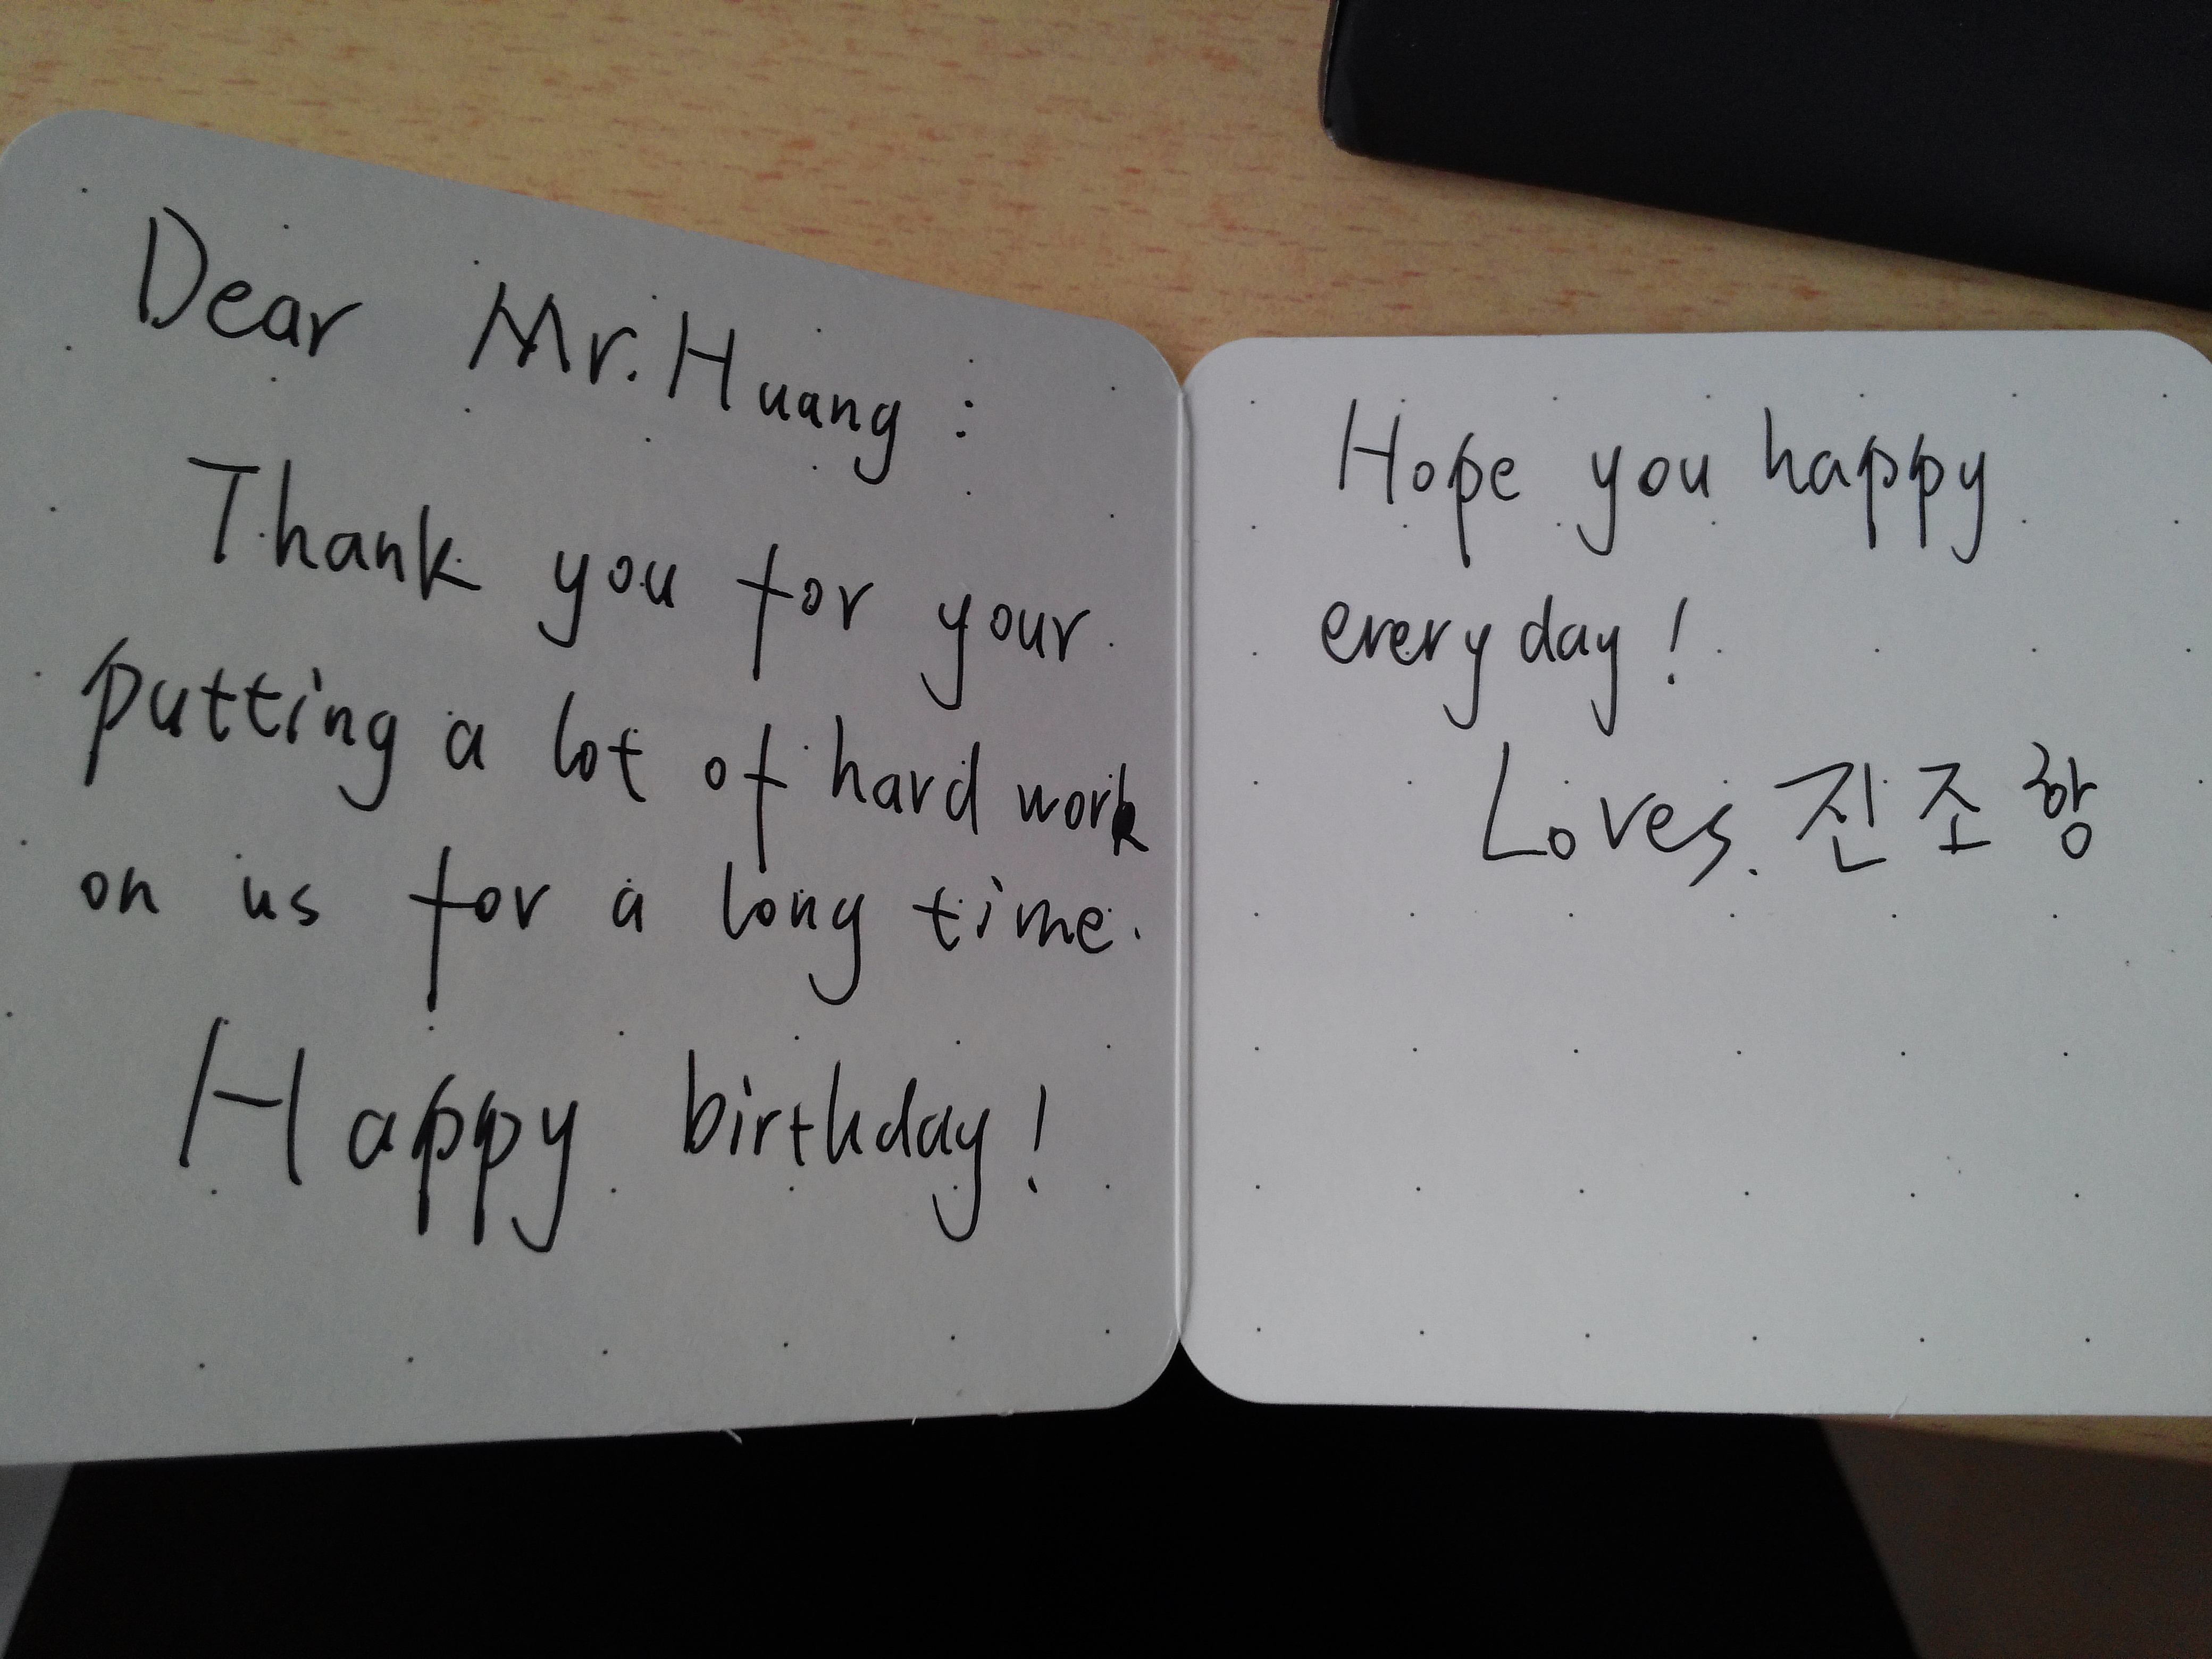 Dear Mr. Huang :
Thank you for your
putting a lot of hard work
on us for a long time.
Happy birthday!
Hope you happy
every day!
Loves. 진조항